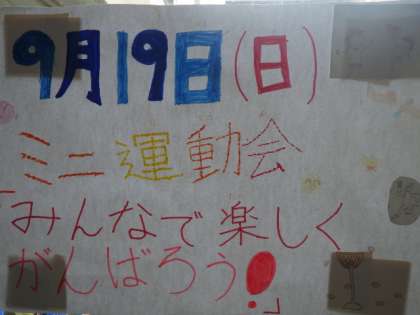 9月19日(日)
ミニ運動会
「みんなで楽しく
がんばろう!」